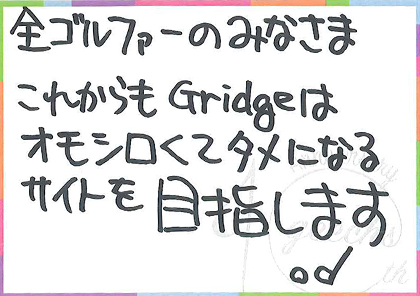 全ゴルファーのみなさま
これからもGridgeは
オモシロくてタメになる
サイトを目指します